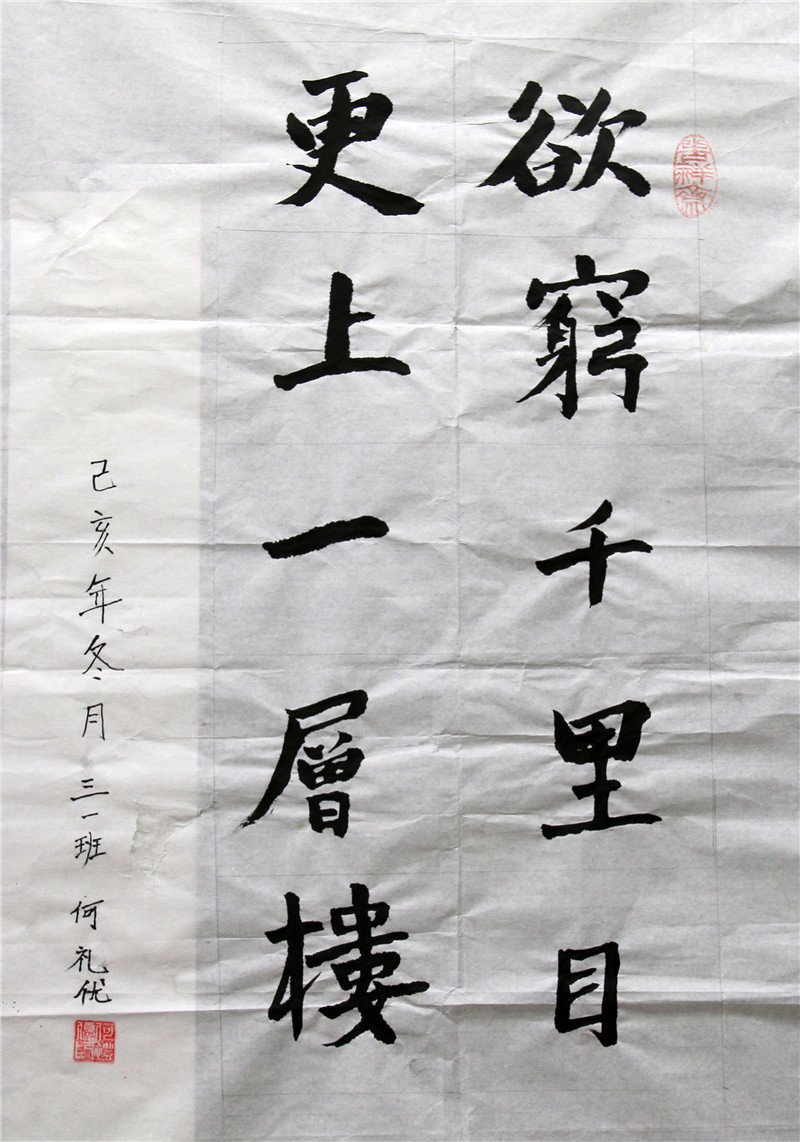 欲窮千里目
更上一層樓
己亥年冬月 三一班 何礼优